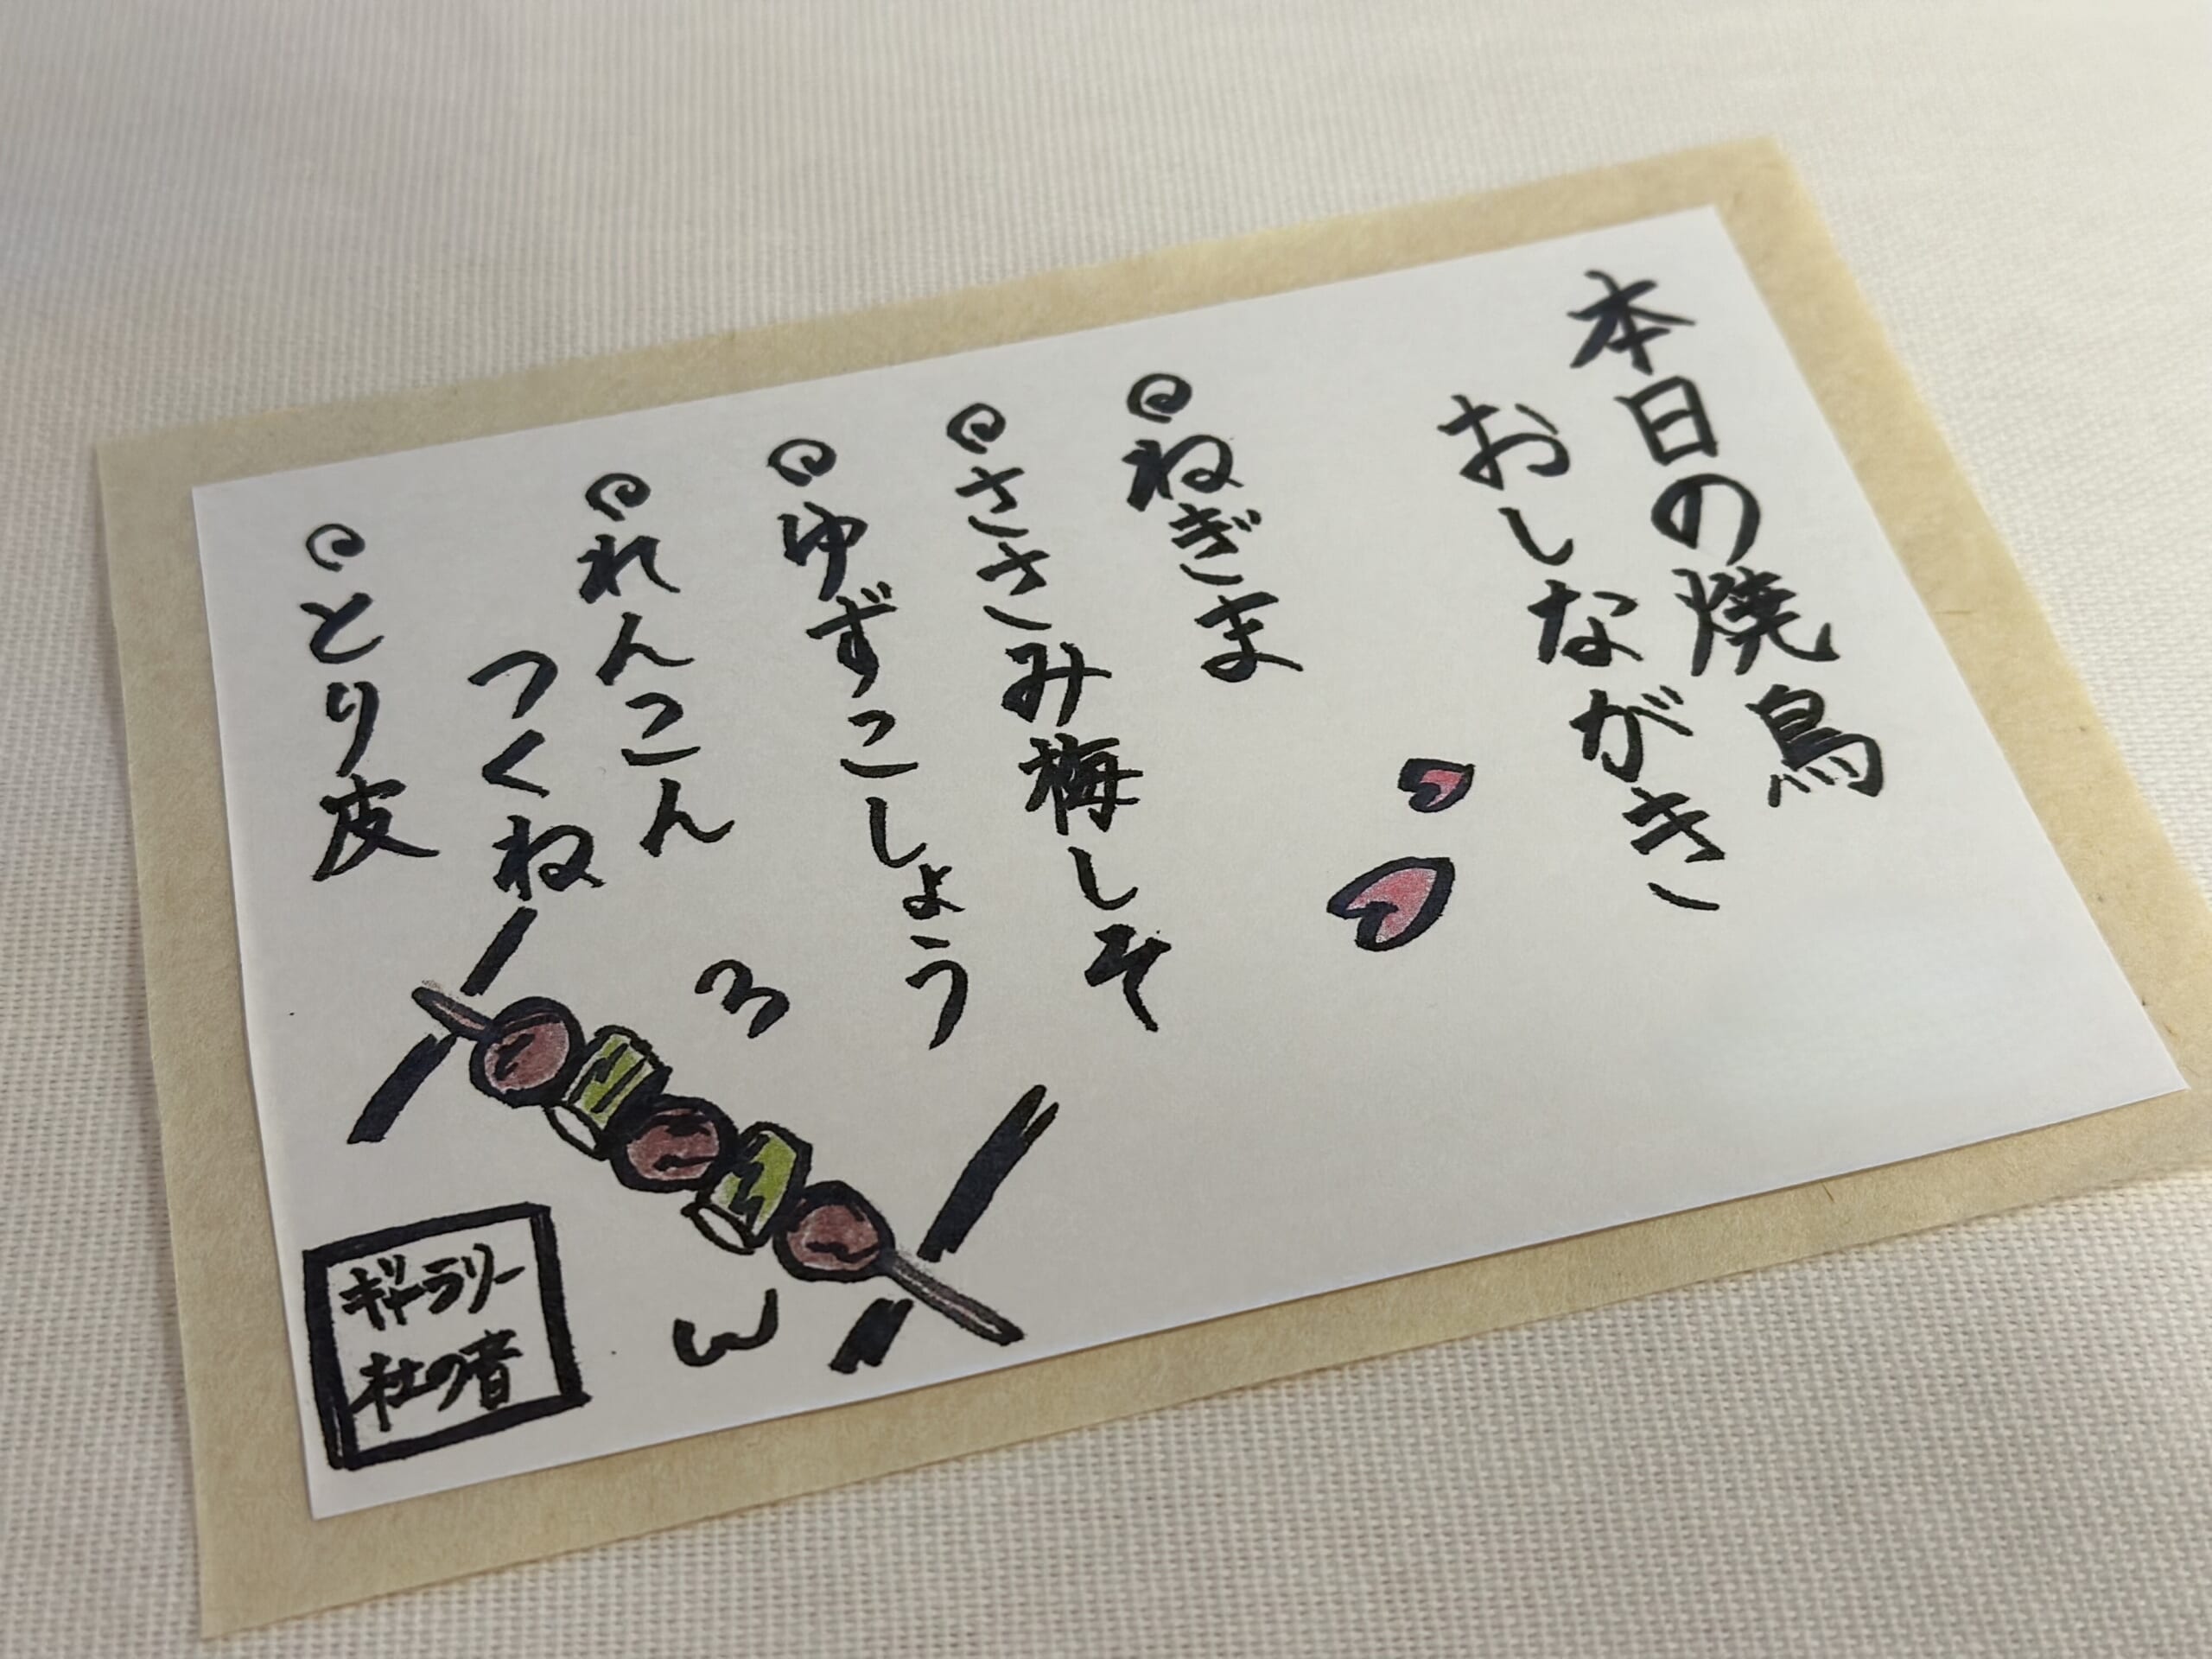 本日の焼鳥
おしながき
ねぎま
ささみ梅しそ
ゆずこしょう
れんこん
つくね
とり皮
ギャラリー
杜の音